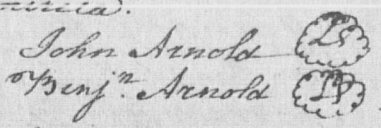 John Arnold LS
Benjn. Arnold LS